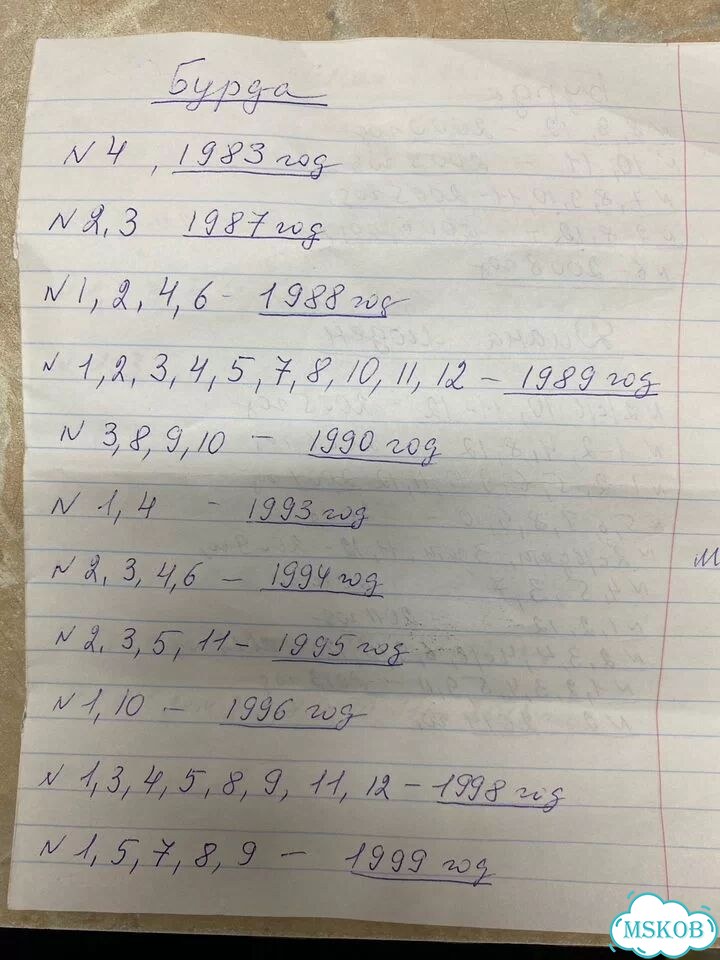 Бурда
N 4, 1983 год
N 2, 3 1987 год
N 1, 2, 4, 6 - 1988 год
N 1, 2, 3, 4, 5, 7, 8, 10, 11, 12 - 1989 год
N 3, 8, 9, 10 - 1990 год
N 1, 4 - 1993 год
N 2, 3, 4, 6 - 1994 год
N 2, 3, 5, 11 - 1995 год
N 1, 10 - 1996 год
N 1, 3, 4, 5, 8, 9, 11, 12 - 1998 год
N 1, 5, 7, 8, 9 - 1999 год
MSKOB